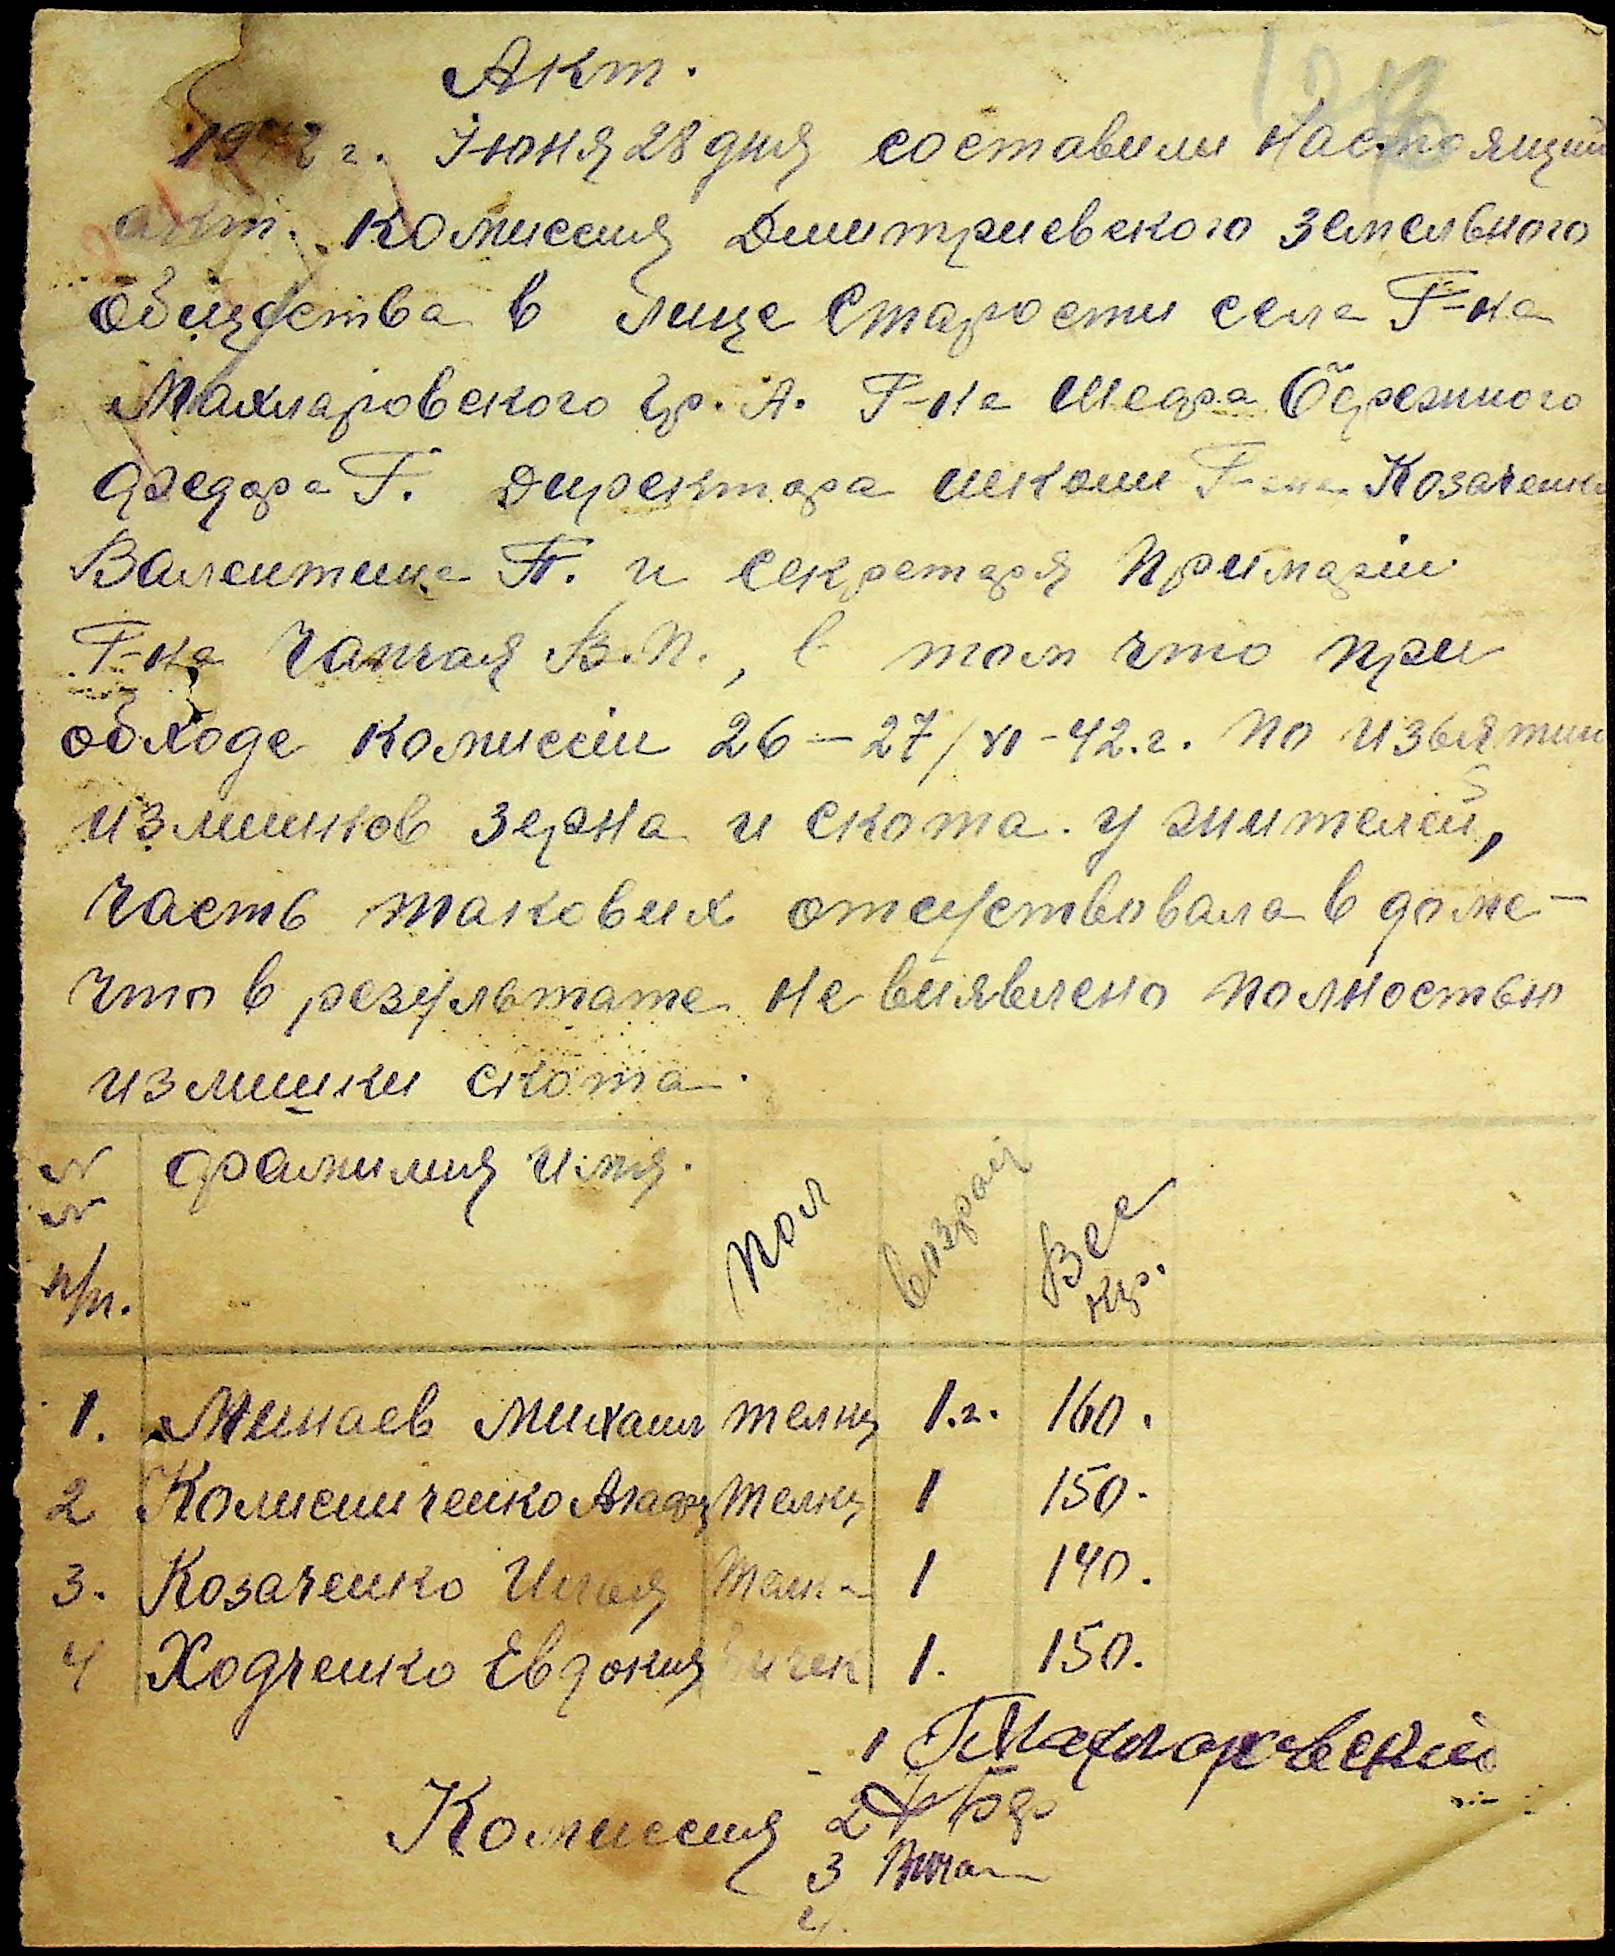 Акт.
1942 г. Июня 28 дня составили настоящий
акт. комиссия Дмитриевского земельного
общества в лице Старости села Г-на
Махларовского Гр. А. Г-на Шефа
Федора Г. Директора школи Г-на Козаченко
Валентина П. и секретаря Примаріи
Г-на Чапчая В.П., в том что при
обходе комиссіи 26-27/VI-42.г. по изьятии
излишков зерна и скота у жителей,
часть таковых отсуствовала в доме-
что в результате не виявлено полностью
излишки скота.
№
№
п/п.
фамилия имя.
пол
возрас
Вес
кгр.
1. Минаев Михаил телиц 1.г. 160.
2 Колисниченко Агафия телиц 1 150.
3. Козаченко Илья телка 1 140.
4 Ходченко Евдокия бичек 1. 150.
1 ГМахларовский
Комиссия 2
3
4.